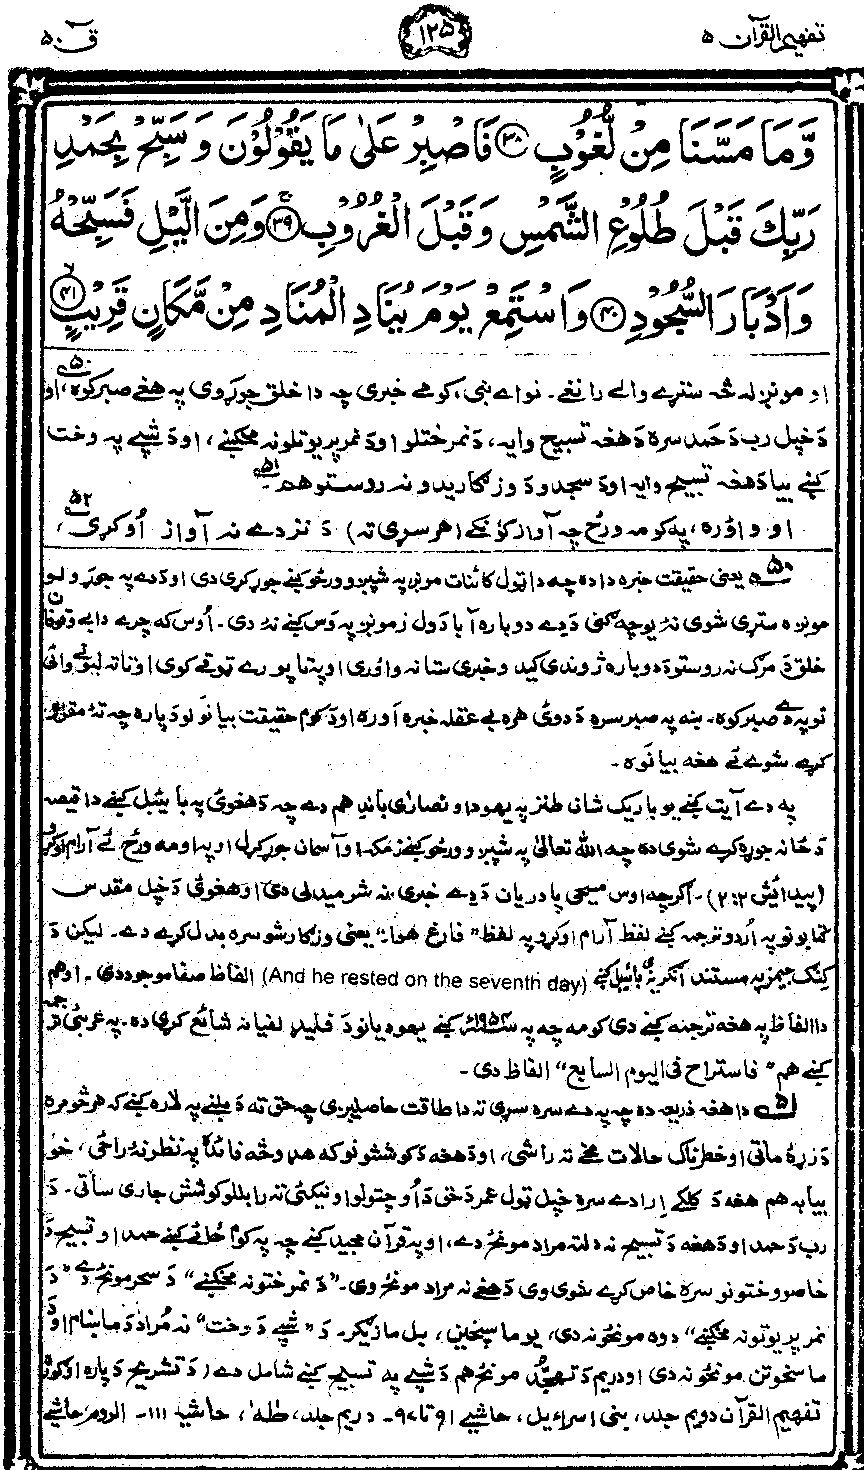 تفهیم القرآن ۵
۱۲۵
ق ۵۰
وَّمَا مَسَّنَا مِنْ لُّغُوْبٍ ۝۳۸ فَاصْبِرْ عَلٰى مَا يَقُوْلُوْنَ وَسَبِّحْ بِحَمْدِ
رَبِّكَ قَبْلَ طُلُوْعِ الشَّمْسِ وَقَبْلَ الْغُرُوْبِ ۝۳۹ وَمِنَ الَّيْلِ فَسَبِّحْهُ
وَاَدْبَارَ السُّجُوْدِ ۝۴۰ وَاسْتَمِعْ يَوْمَ يُنَادِ الْمُنَادِ مِنْ مَّكَانٍ قَرِيْبٍ ۝۴۱
او مونږ له څه ستړے والے رانغے۔ نو اے نبی، کومے خبری چہ دا خلق جوړوی په هغے صبر کوہ،۵۰ او
دخپل رب دَ حمد سرہ دَ هغه تسبیح وایه، دَ نمر ختلو او دَ نمر پریوتلو نه مخکښے، او دَ شپے په وخت
کښے بیا دَ هغه تسبیح وایه او دَ سجدو دَ وزګاریدو نه روستو هم۔۵۱
او واؤره، په کومه ورځ چه آواز کوُنکے (هر سړی ته) دَ نزدے نه آواز اُوکړی،۵۲
۵۰ یعنی حقیقت خبره داده چه دا ټول کائنات مونږ په شپږو ورځو کښے جوړ کړی دی او دَ دے په جوړولو
مونږه ستړی شوی نهٔ یو چه ګنی دَ دے دوباره آبادول زمونږ په وس کښے نهٔ دی۔ اوس که چرے دا بے وقوفان
خلق دَ مرګ نه روستو دَ دوباره ژوندی کیدو خبری ستا نه واؤری او په تا پورے ټوقے کوی او تا ته لیونے وائی
نو په دے صبر کوہ۔ بنه په صبر سره دَ دوئ هره بے عقله خبره آوره او دَ کوم حقیقت بیانولو دَ پاره چه تهٔ مقرر
کړے شوے ئے هغه بیانوہ۔
په دے آیت کښے یو باریک شان طنز په یهود او نصاریٰ باندِ هم دے چه دَ هغوئ په بائیبل کښے دا قیصه
دَ ځانه جوړه کړے شوی ده چه الله تعالیٰ په شپږو ورځو کښے زمکه او آسمان جوړ کړل او په اومه ورځ ئے آرام اوکړو
(پیدائش ۲:۲)۔ اګرچه اوس مسیحی پادریان دَ دے خبری نه شرمیدلی دی او هغوئ دَ خپل مقدس
کتابونو په اُردو ترجمه کښے لفظ آرام اوکړو په لفظ "فارغ هوا" یعنی وزګار شو سره بدل کړے دے۔ لیکن دَ
کِنګ جیمز په مستند انګریزئ بائیبل کښے (And he rested on the seventh day) الفاظ صفا موجود دی۔ او هم
دا الفاظ په هغه ترجمه کښے دی کومه چه په سنه ۱۹۵۴ء کښے یهودیانو دَ فلیډلفیا نه شائع کړی ده۔ په عربئ ترجمه
کښے هم "فاستراح فی الیوم السابع" الفاظ دی۔
۵۱ دا هغه ذریعه ده چه په دے سره سړی ته دا طاقت حاصلیږی چه حق ته دَ بلنے په لاره کښے که هر څومره
دَ زړهٔ ماتی او خطرناک حالات مخے ته راشی، او دَ هغه دَ کوششونو که هډو څه فائده په نظر نهٔ راځی، خو
بیا به هم هغه دَ کلکے اِرادے سره خپل ټول عمر دَ حق دَ اُوچتولو او نیکئ ته رابللو کوشش جاری ساتی۔ دَ
رب دَ حمد او دَ هغه دَ تسبیح نه دلته مراد مونځ دے، او په قرآن مجید کښے چه په کوم ځائے کښے حمد او تسبیح دَ
خاصو وختونو سره خاص کړے شوی وی دَ هغے نه مراد مونځ وی۔ "دَ نمر ختو نه مخکښے" دَ سحر مونځ دے "دَ
نمر پریوتو نه مخکښے" دوه مونځونه دی، یو ما سپخین، بل مازیګر۔ دَ "شپے دَ وخت" نه مُراد دَ ماښام او دَ
ماسخوتن مونځونه دی او دریم دَ تهجد مونځ هم دَ شپے په تسبیح کښے شامل دے (دَ تشریح دَ پاره اوګورئ
تفهیم القرآن دویم جلد، بنی اسرائیل، حاشیے ۹۱ تا ۹۷۔ دریم جلد، طٰهٰ، حاشیه ۱۱۱۔ الروم، حاشیے